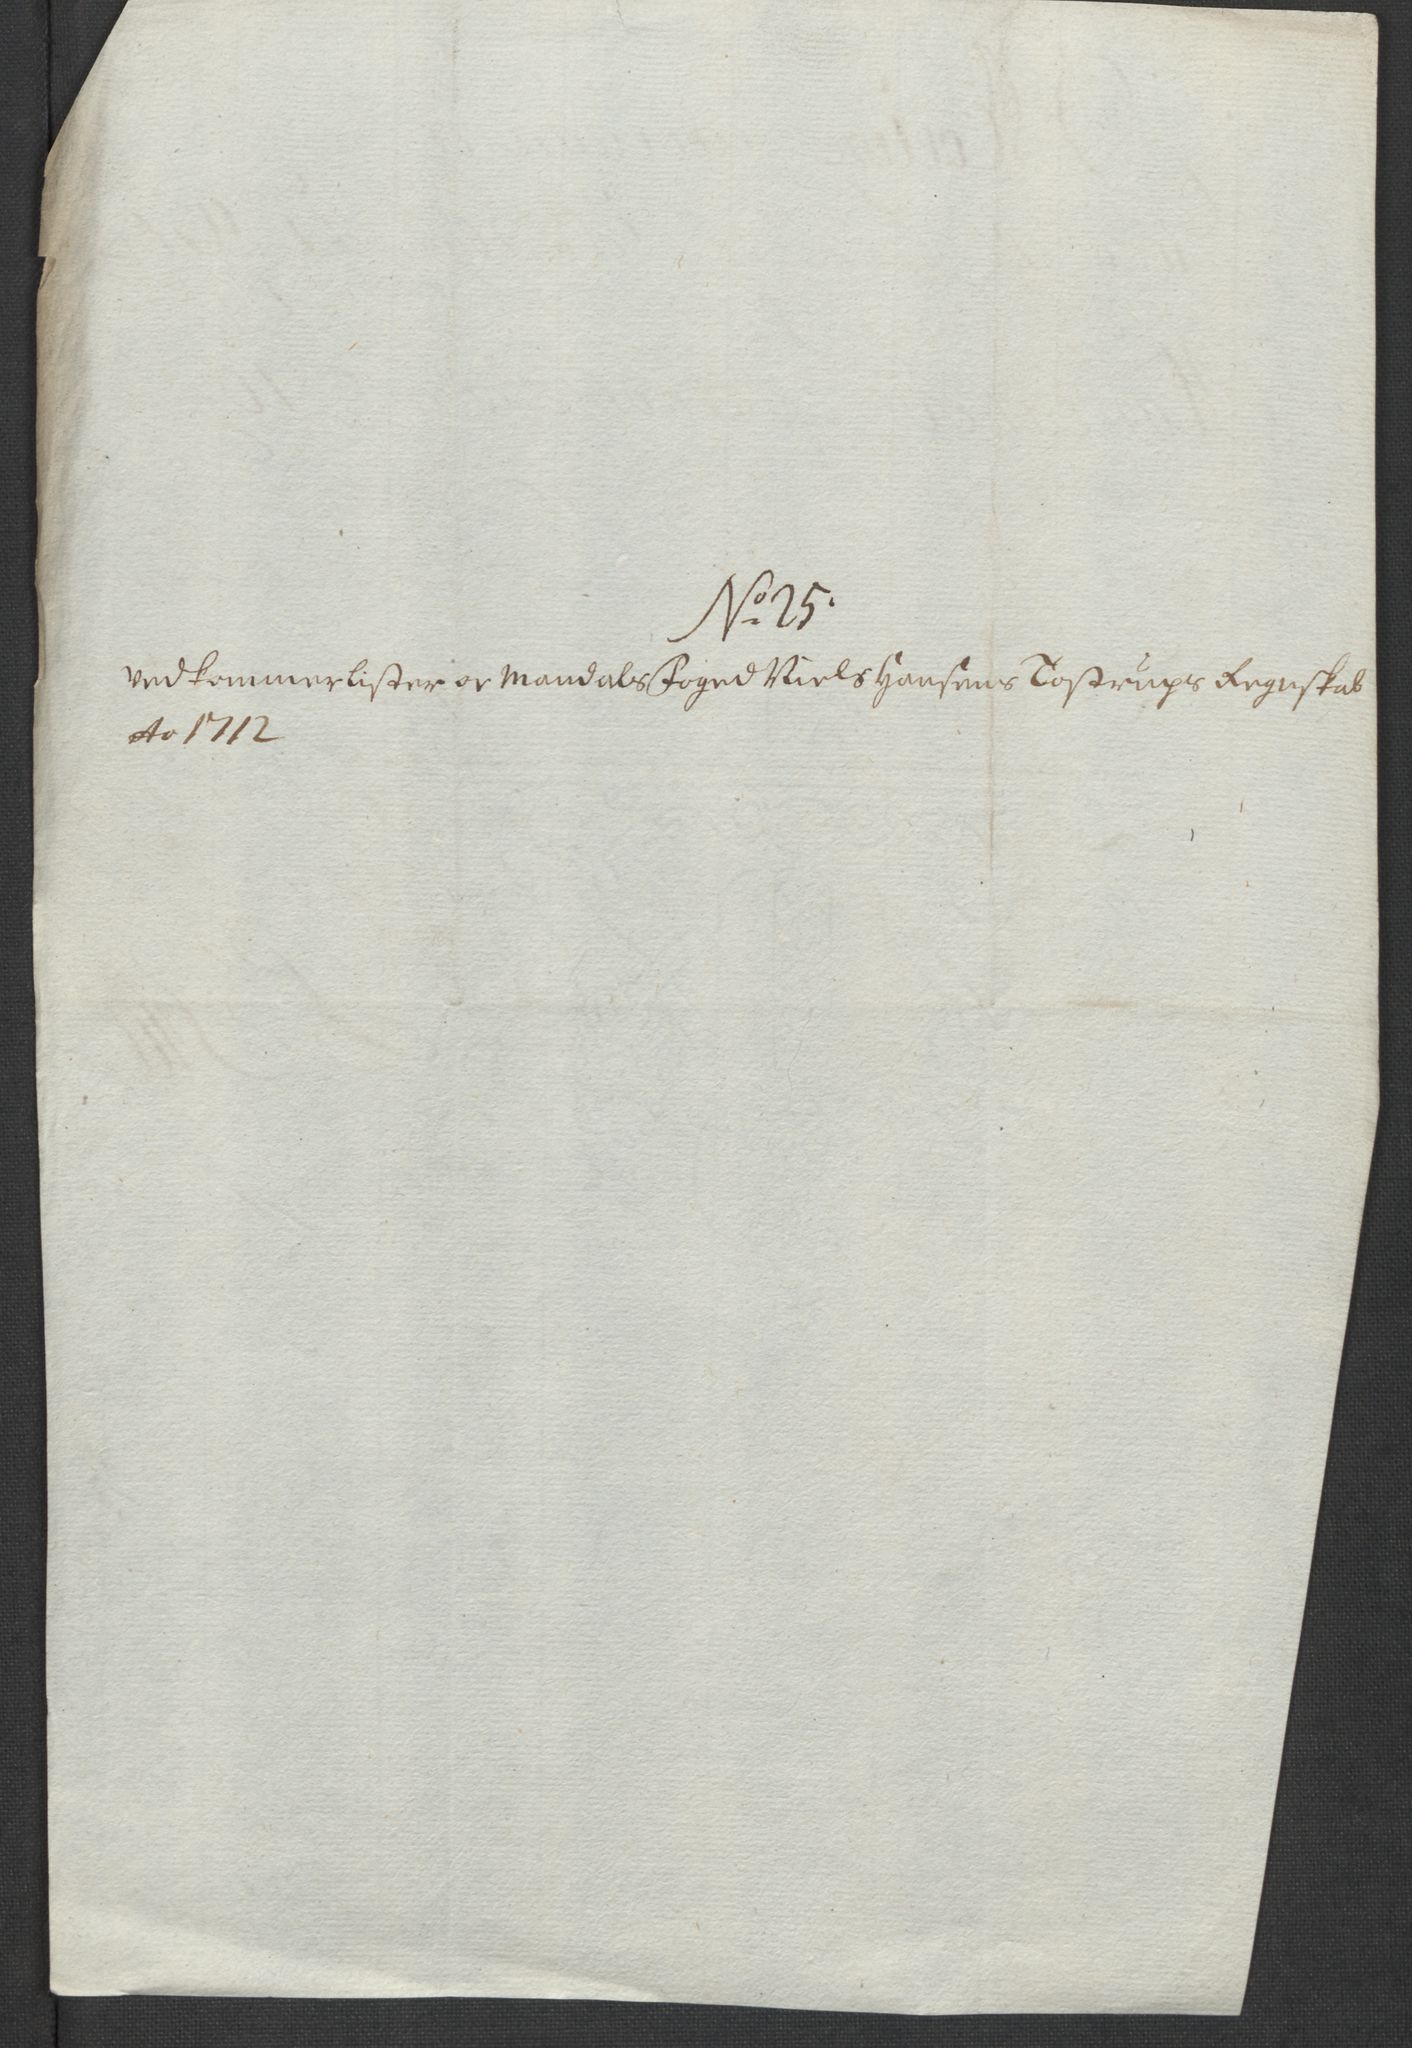 No 25.
vedkommer Lister oc Mandals Foged Niels Hansens Tostrups Regnskab
Ao 1712